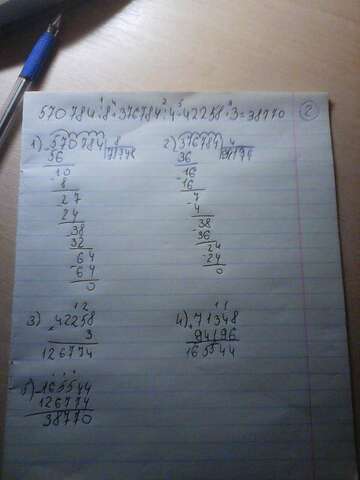 570 784:8+376784:4-42258·3=38770
2
1) 570784 8
56 71348
10
8
27
24
38
32
64
64
0
2) 376784 4
36 94196
16
16
7
4
38
36
24
24
0
3) 42258
3
126774
4) 71348
94196
165544
5) 165544
126774
38770